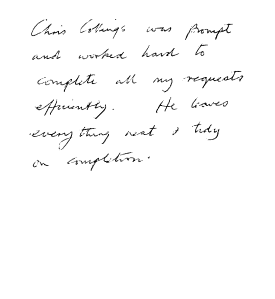 Chris Collings was prompt
and worked hard to
complete all my requests
efficiently. He leaves
everything neat & tidy
on completion.